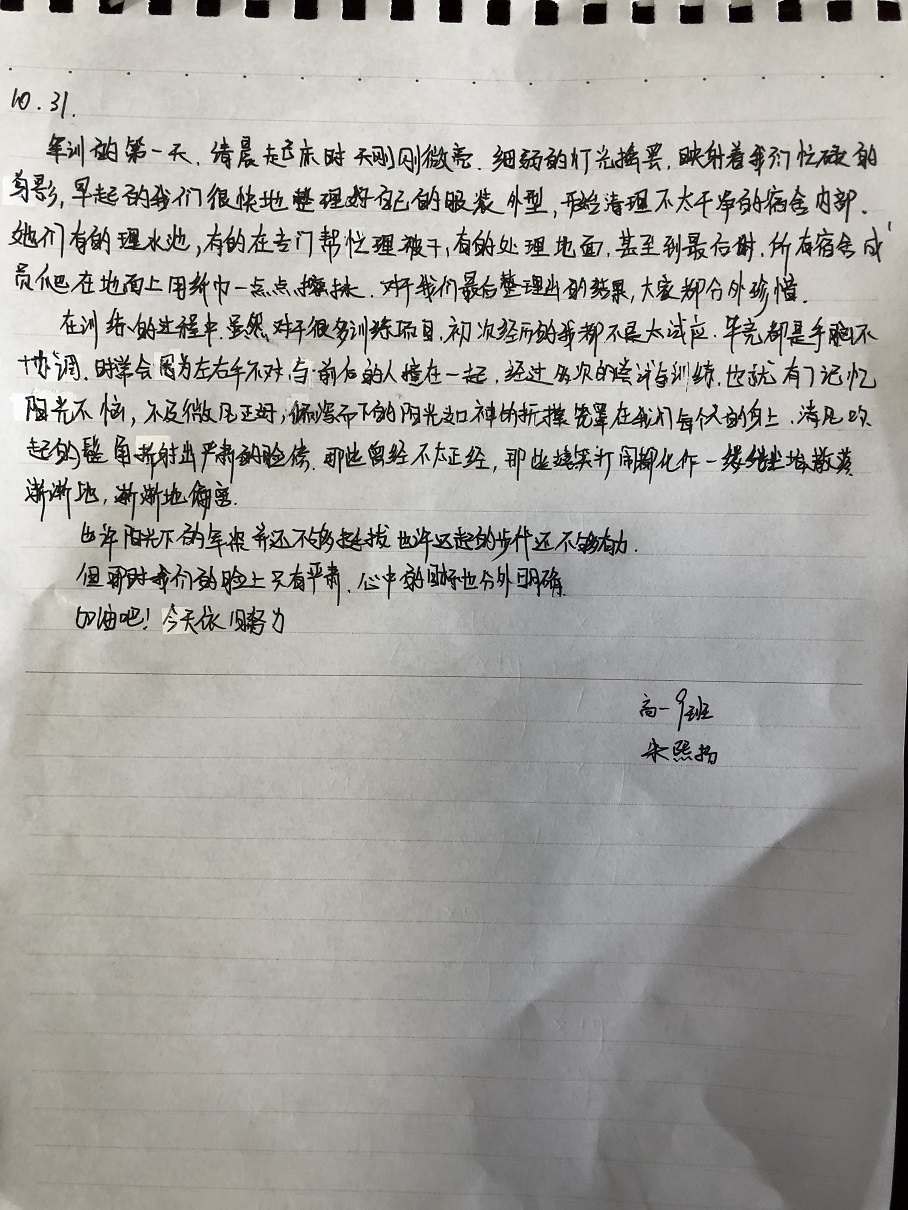 10.31.
军训的第一天,清晨起床时天刚刚微亮.细弱的灯光摇晃,映射着我们忙碌的
剪影,早起的我们很快地整理好自己的服装外型,开始清理不太干净的宿舍内部.
她们有的理水池,有的在专门帮忙理被子,有的处理地面,甚至到最后时,所有宿舍成
员爬在地面上用纸巾一点点擦水.对于我们最后整理出的结果,大家都分外珍惜.
在训练的过程中.虽然对于很多训练项目,初次经历的我都不是太试应.毕竟都是手脚不
协调.时常会因为左右手不对,与前后的人撞在一起,经过多次的尝试与训练,也就有了记忆
阳光不恼,不及微风正好,倾泻而下的阳光如神的折撲笼罩在我们每个人的身上.清风吹
起的鬓角折射出严肃的脸偻.那些曾经不太正经,那些嬉笑打闹都化作一缕缕尘埃散落
渐渐地,渐渐地偏离.
也许阳光下的军姿并还不够挺拔也许迈起的步伐还不够有力.
但那时我们的脸上只有严肃.心中的目标也分外明确.
加油吧!今天依旧努力
高一9班
朱熙扬